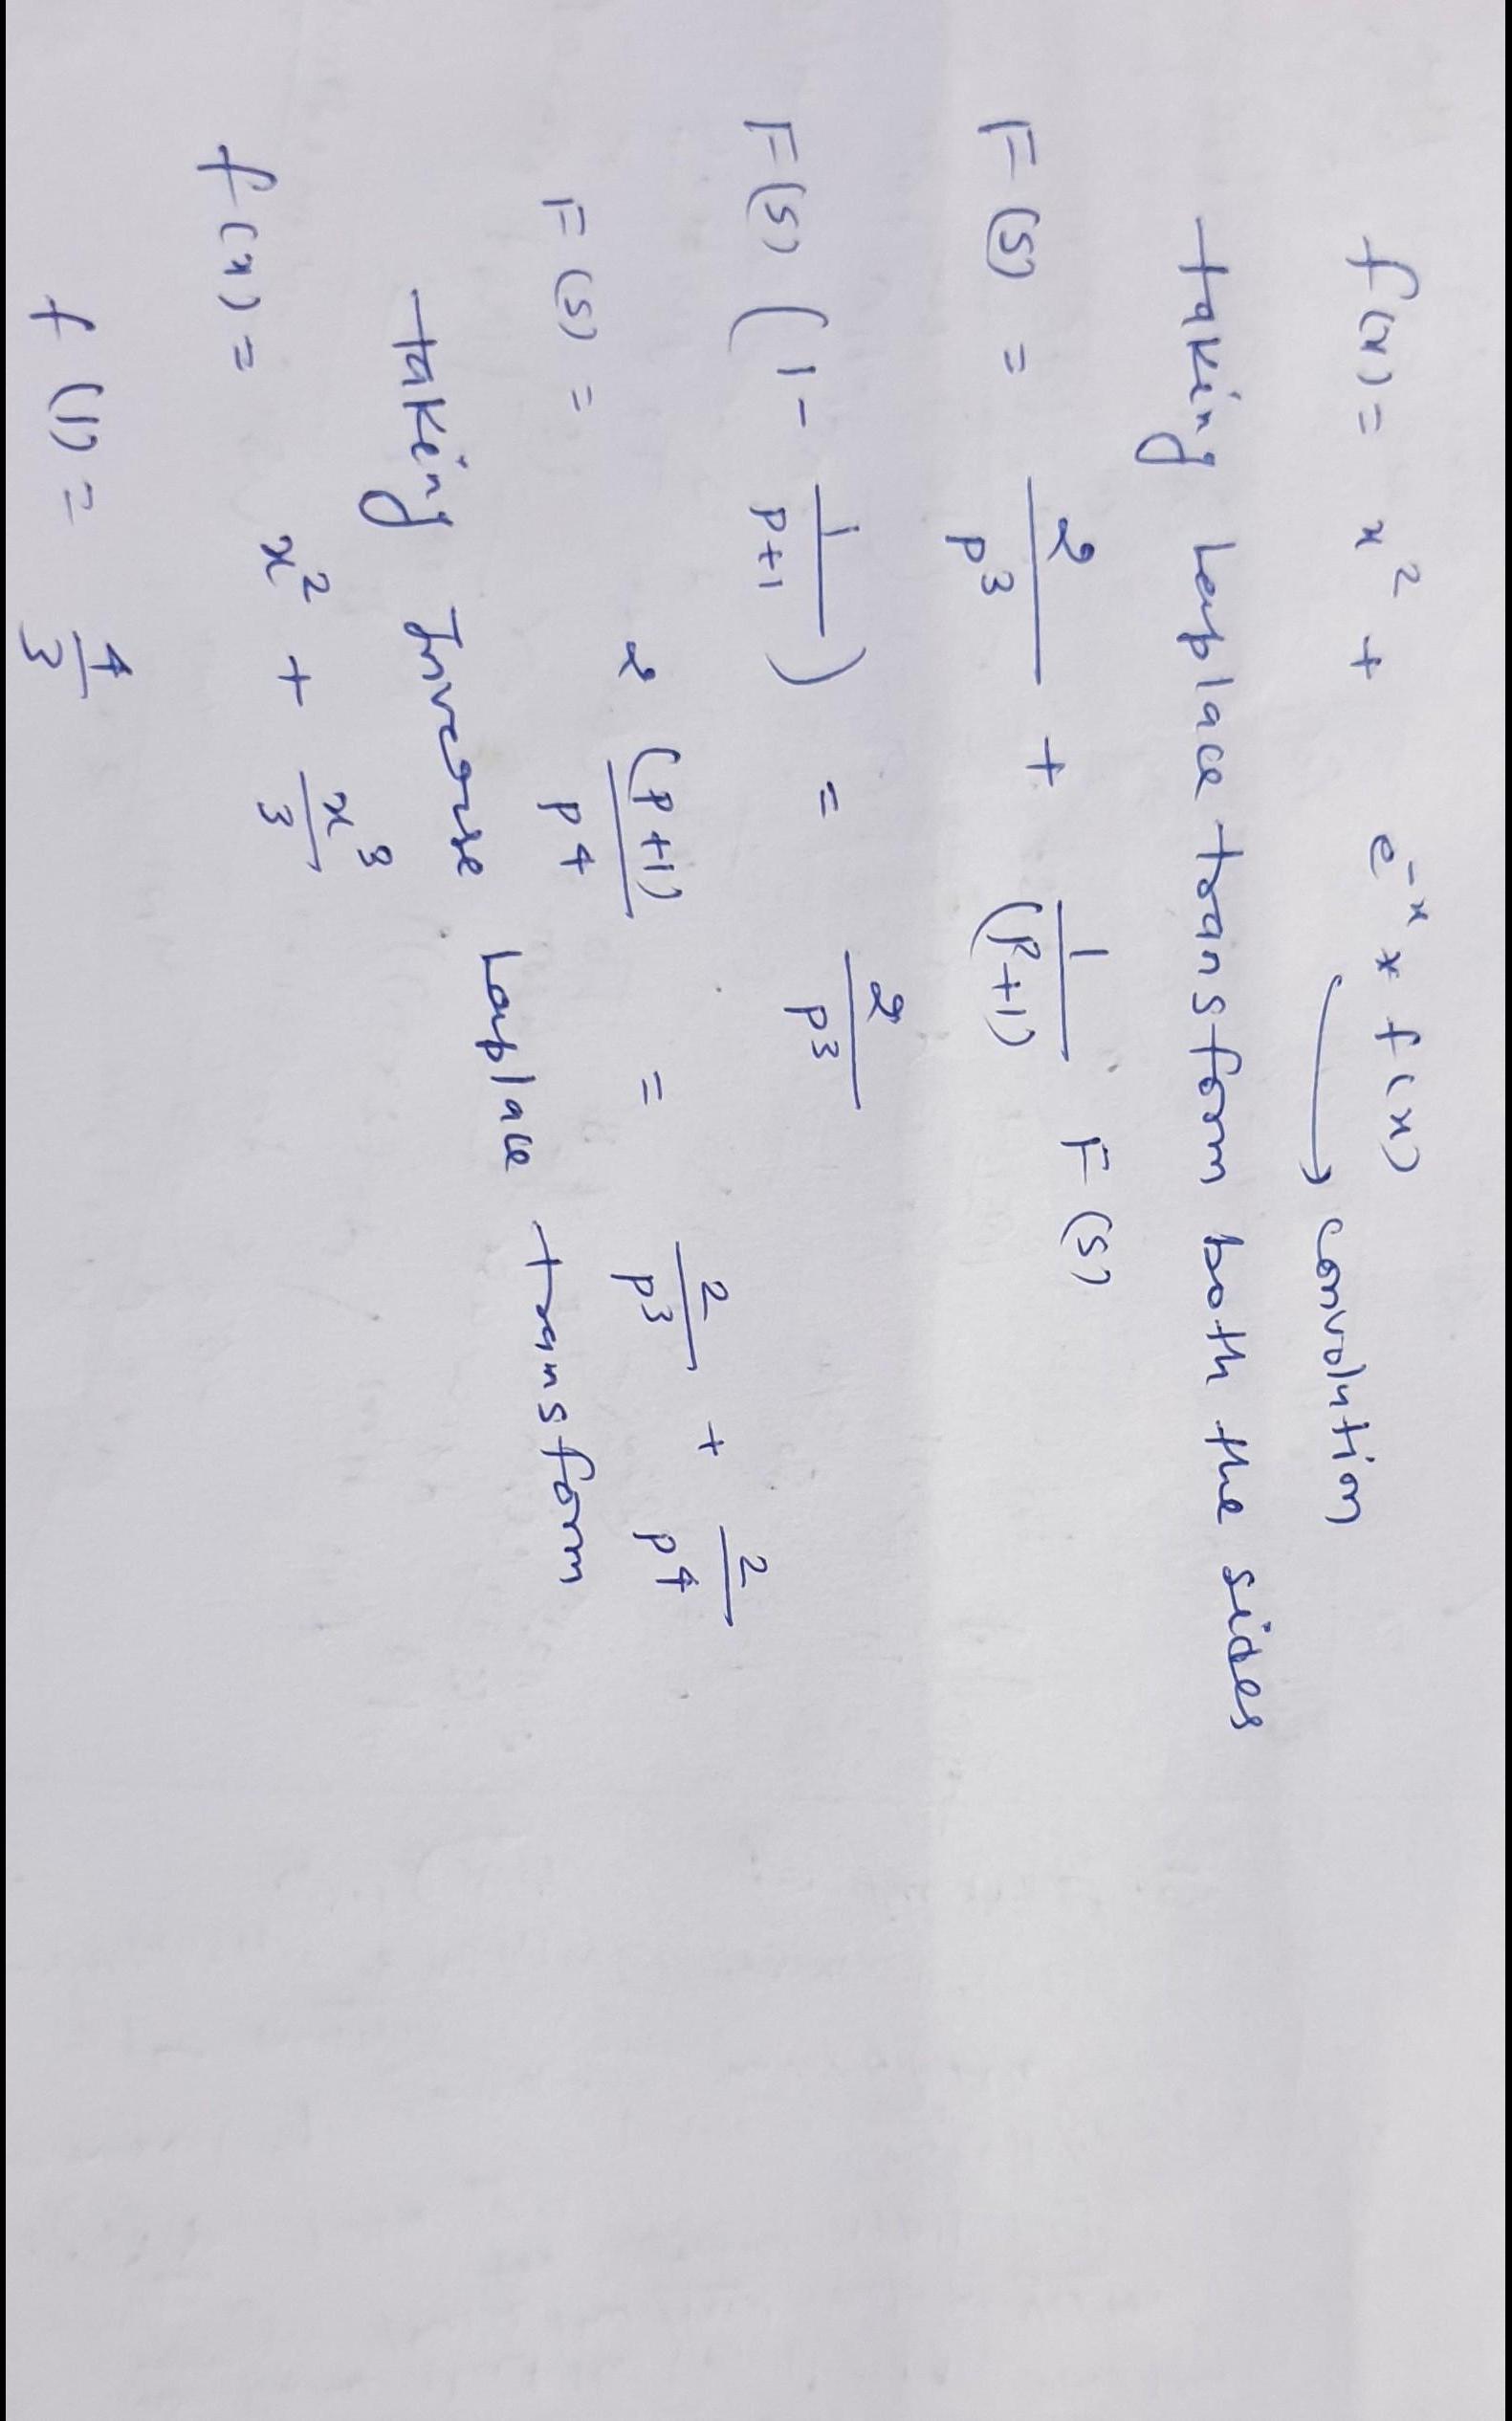 f(x) = x² + e⁻ˣ * f(x)
→ convolution
taking Laplace transform both the sides
F(s) = 2/p³ + 1/(p+1) F(s)
F(s) (1 - 1/p+1) = 2/p³
F(s) = 2 (p+1)/p⁴ = 2/p³ + 2/p⁴
taking Inverse Laplace transform
f(x) = x² + x³/3
f(1) = 4/3